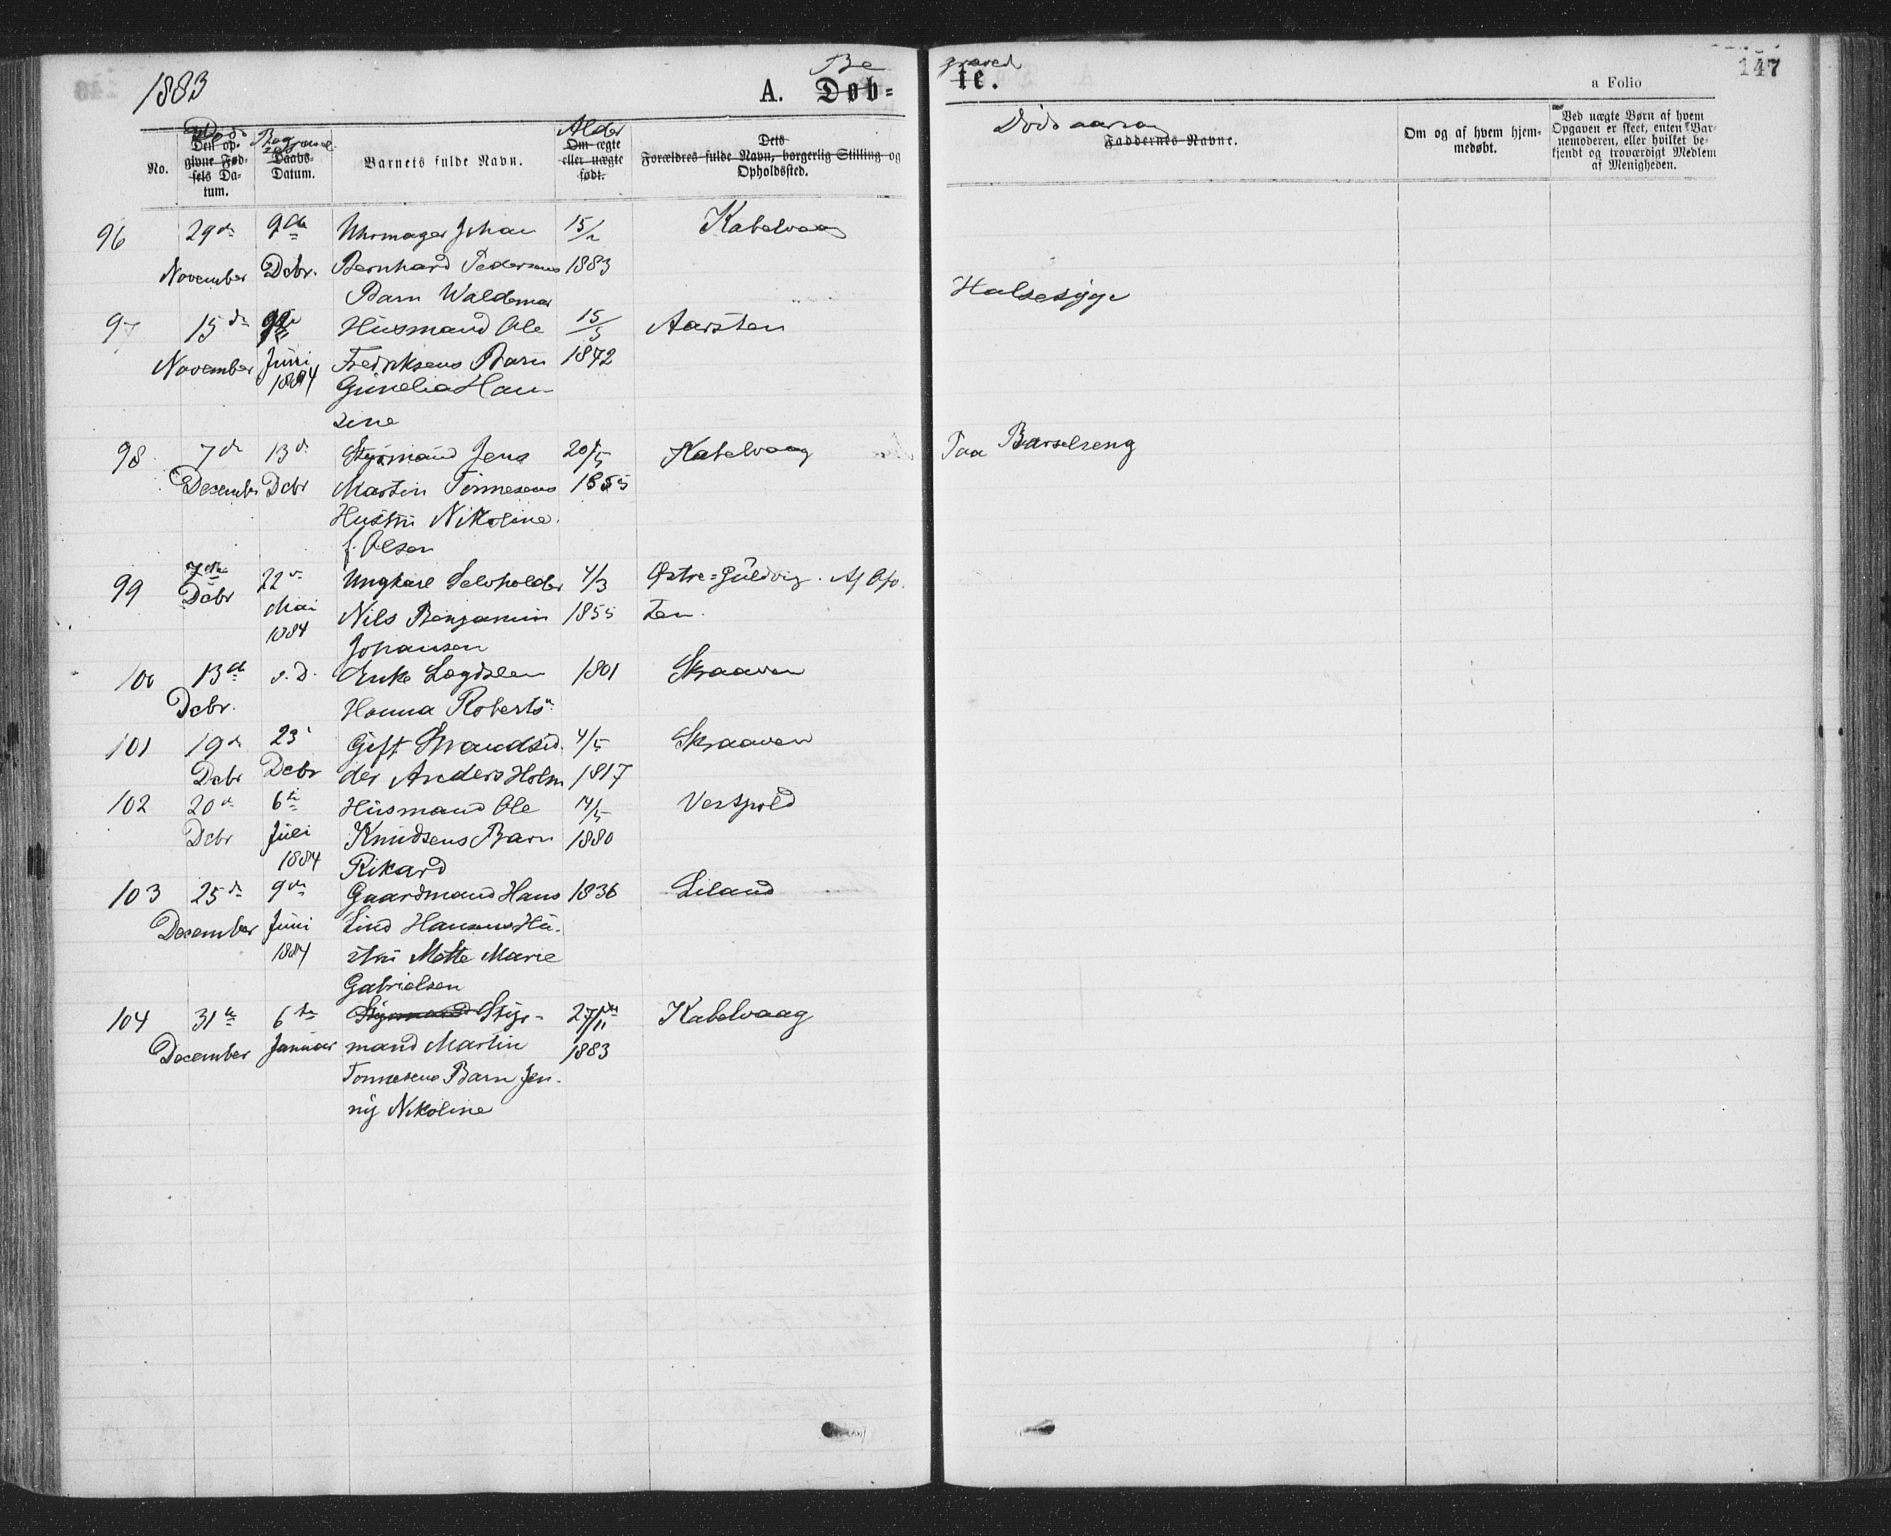 1883
Be graved
A. Døb= te.
147
a Folio
No.
Døds
Den op-
givne Fød-
sels Da-
tum.
Daabs-
Datum.
Barnets fulde Navn.
Alder
Om ægte
eller uægte
født.
Dets
Forældres fulde Navn, borgerlig Stilling og
Opholdssted.
Dødsaarsag
Faddernes Navne.
Om og af hvem hjem-
medøbt.
Ved uægte Børn af hvem
Opgaven er skeet, enten Bar-
nemoderen, eller hvilket be-
kjendt og troværdigt Medlem
af Menigheden.
96 29de 9de Uhrmager Johan 15/2 Kabelvaag
November Dcbr. Bernhard Pedersens 1883
Barn Waldemar Halsesyge
97 15de Husmand Ole 15/3 Aarsten
November Juni Fredriksens Barn 1872
1884 Gunelia Han-
sine
98 7de 13de Styrmand Jens 20/5 Kabelvaag Paa Barselseng
December Dcbr Martin Tønnesens 1855
Hustru Nikoline
f. Olsen
99 7de 22de Ungkarl Selvholder 4/3 Østre=Guldvig. Af Ofo-
Dcbr Mai Nils Benjamin 1855 ten.
1884 Johansen
100 13de s. D. Enke Lægdslem 1801 Skraaven
Dcbr. Hanna Roberts
101 19de 23 Gift Strandsid- 4/5 Skraaven
Dcbr Dcbr der Anders Holm 1817
102 20de 6te Husmand Ole 14/5 Vestpold
Dcbr Juli Knudsens Barn 1880
1884 Rikard
103 25de 9de Gaardmand Hans 1836 Liland
December Juni Lind Hansens Hu-
1884 stru Mette Marie
Gabrielsen
104 31te 6te Styrmand Styr- 27/11 Kabelvaag
December Januar mand Martin 1883
Tønnesens Barn Jen-
ny Nikoline